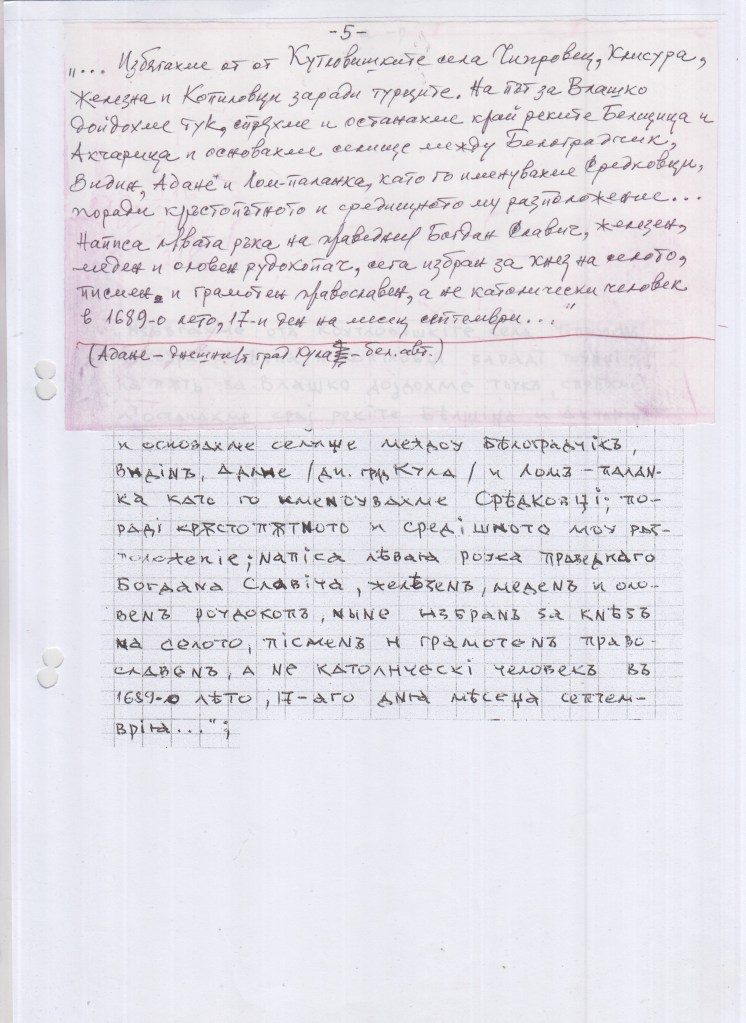 -5-
„... Избягахме от от Кутловишките села Чипровец, Клисура,
Железна и Копиловци заради турците. На път за Влашко
дойдохме тук, спряхме и останахме край реките Белщица и
Акчарица и основахме селище между Белоградчик,
Видин, Адане и Лом-паланка, като го именувахме Средковци,
поради кръстопътното и средищното му разположение...
Написа лявата ръка на праведния Богдан Славич, железен,
меден и оловен рудокопач, сега избран за кнез на селото,
писмен и грамотен православен, а не католически человек
в 1689-о лето, 17-и ден на месец септември..."
(Адане – днешният град Кула – бел. авт.)
и основахме селище междоу Бѣлоградчікъ,
Видінъ, Адане /дн. град Кула/ и Ломъ-палан-
ка като го именоувахме Срѣдковці; по-
раді крѫстопѫтното и средішното моу раз-
положеніе; написа лѣваıа роука праведнаго
Богдана Славіча, желѣзенъ, меденъ и оло-
венъ роудокопъ, ныне избранъ за кнѣзъ
на селото, пісменъ и грамотенъ право-
славенъ, а не католическі человекъ въ
1689-о лѣто, 17-аго дніа мѣсеца септем-
вріıа...";